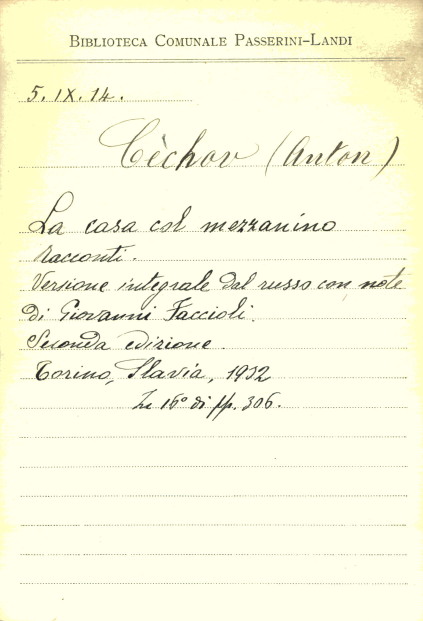 BIBLIOTECA COMUNALE PASSERINI-LANDI
5. IX. 14.
Cèchov (Anton)
La casa col mezzanino
Racconti.
Versione integrale dal russo con note
di Giovanni Faccioli.
Seconda edizione.
Torino, Slavia, 1932
In 16° di pp. 306.